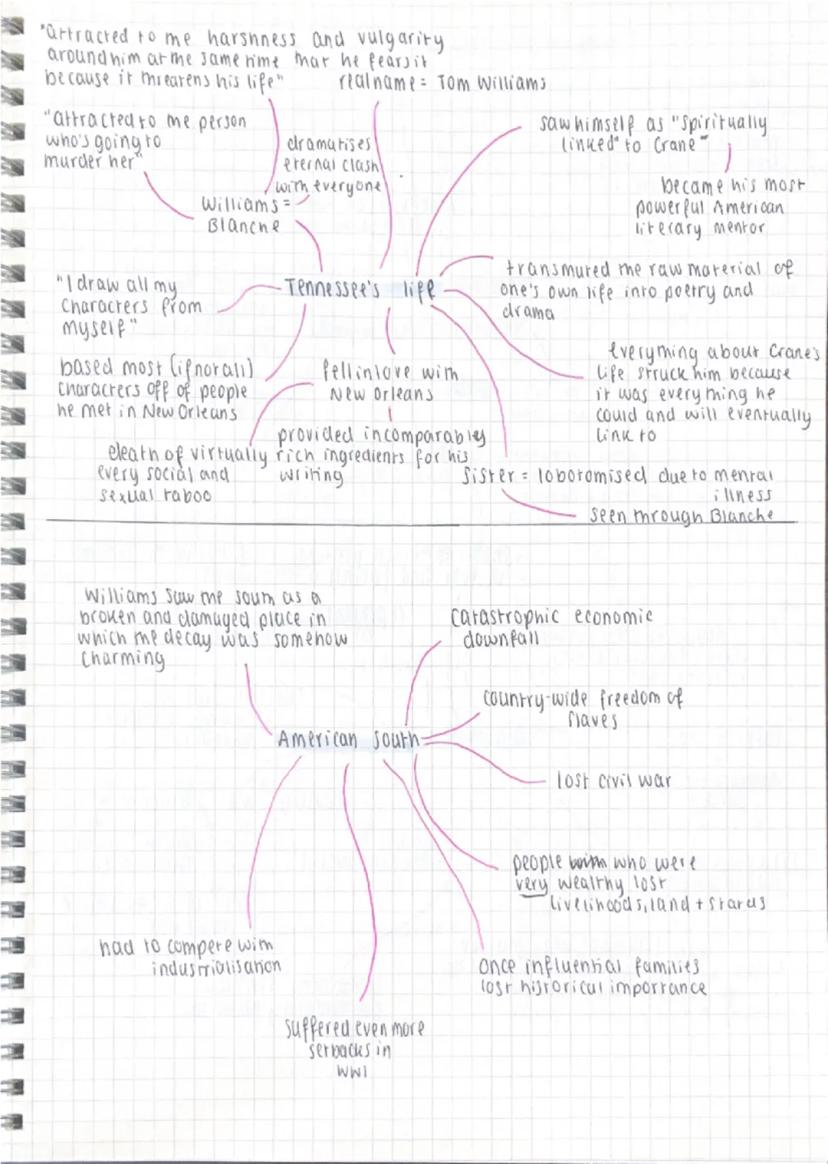 "attracted to me harshness and vulgarity
around him at the same time that he fears it
because it threatens his life"
real name = Tom Williams
"attracted to me person
who's going to
murder her"
dramatises
eternal clash
with everyone
Williams =
Blanche
saw himself as "spiritually
linked" to Crane"
became his most
powerful American
literary mentor
Tennessee's life
"I draw all my
characters from
myself"
transmuted the raw material of
one's own life into poetry and
drama
based most (if not all)
characters off of people
he met in New Orleans
fell in love with
New Orleans
everything about Crane's
life struck him because
it was everything he
could and will eventually
link to
death of virtually
every social and
sexual taboo
provided incomparably
rich ingredients for his
writing
Sister = lobotomised due to mental
illness
seen through Blanche
Williams saw the south as a
broken and damaged place in
which the decay was somehow
charming
catastrophic economic
downfall
country-wide freedom of
slaves
American South
lost civil war
people who were
very wealthy lost
livelihoods, land + status
had to compete with
industrialisation
once influential families
lost historical importance
suffered even more
setbacks in
WWI